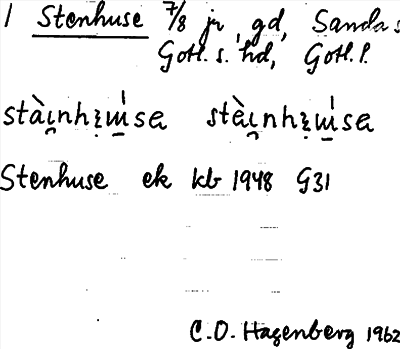 1 Stenhuse 7/8 jr, gd, Sanda s
Gotl. s. hd, Gotl. l.
Stenhuse ek kb 1948 G31
C.O. Hagenberg 1962